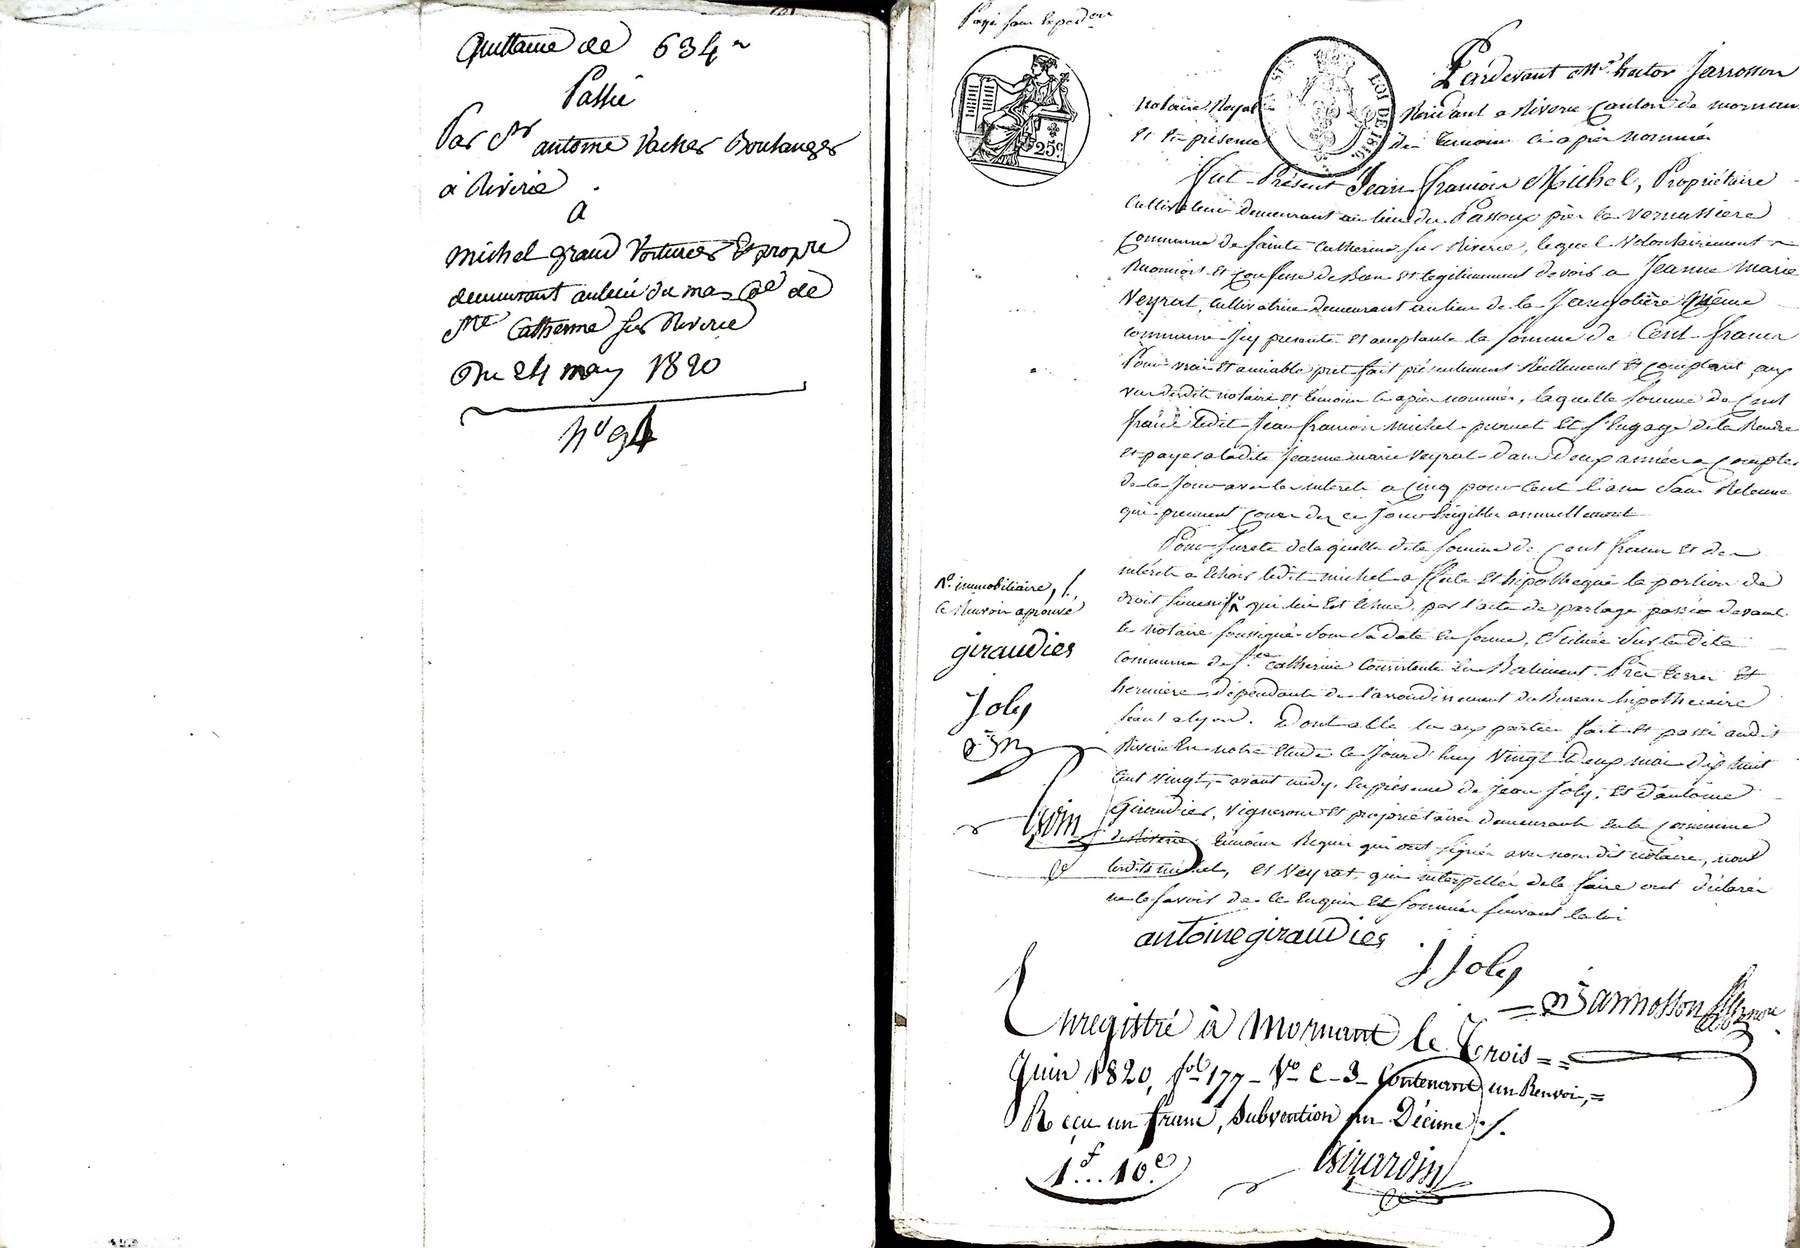 Quittance de 634 "
Passée
Par Sr antoine Vacher Boulanger
a Riverie
A
michel grand Voiturier Et propre
demeurant au lieu du mas Cne de
Ste Catherine sur Riverie
Du 24 may 1820
No 94
Passé sans Expedon
Pardevant Me hector Jarrosson
notaire Royal Résidant a Riverie Canton de mornan
Et En présence des temoins ci apres nommés
Fut Présent Jean francois Michel, Propriétaire
Cultivateur demeurant au lieu du Passoux près la vernussiere
Commune de Sainte Catherine sur Riverie, lequel Volontairement
Reconnoit et Confesse de Bien et legitimement devoir a Jeanne Marie
Veyrat, Cultivatrice demeurant au lieu de la Jangotière Même
commune Icy presente et acceptante la Somme de Cent francs
Pour vrai Et amiable pret fait présentement Réellement Et Comptant, aux
vues desdits notaire et temoins ci apres nommés, laquelle Somme de Cent
francs ledit Jean francois michel promet Et S'Engage de la Rendre
et payer a ladite Jeanne marie Veyrat dans Deux années a Compter
de ce Jour avec les interets a Cinq pour Cent l'an Sans Retenue
qui prennent Cours des ce Jour Exigible annuellement
Pour Sureté de laquelle dite Somme de Cent francs et des
intérets a Echoir ledit michel affecte Et hipotheque la portion de
droit qui lui Est échue, par l'acte de partage passé devant
le Notaire soussigné Sous Sa date En forme, Située Sur ladite
commune de Ste Catherine Consistante En Batiment, Près terres Et
hermière dépendante de l'arrondissement du Bureau hipothecaire
séant a lyon. Dont acte lu aux parties fait et passé audit
Riverie En notre Etude ce Jourd'huy Vingt Deux mai dix huit
Cent Vingt, avant midy, En présence de Jean Joly, Et d'antoine
Giraudier, Vignerons et propriétaires demeurants En la Commune
de Riverie, temoins Requis qui ont signés avec nous dit notaire, non
lesdits michel, Et Veyrat, qui interpellés de le faire ont déclarés
ne le Savoir de ce Enquis Et Sommés Suivant la loi
No immobiliaire, /.
Ce Renvoi aprouvé
giraudier
Joly
antoine giraudier
J Joly
Jarrosson
Enregistré à Mornant le Trois = =
Juin 1820, fol 177 - Vo C - 3 - Contenant un Renvoi, =
Reçu un franc, Subvention un Décime ./.
1f... 10c
Girardin
25c
LOI DE 1816.